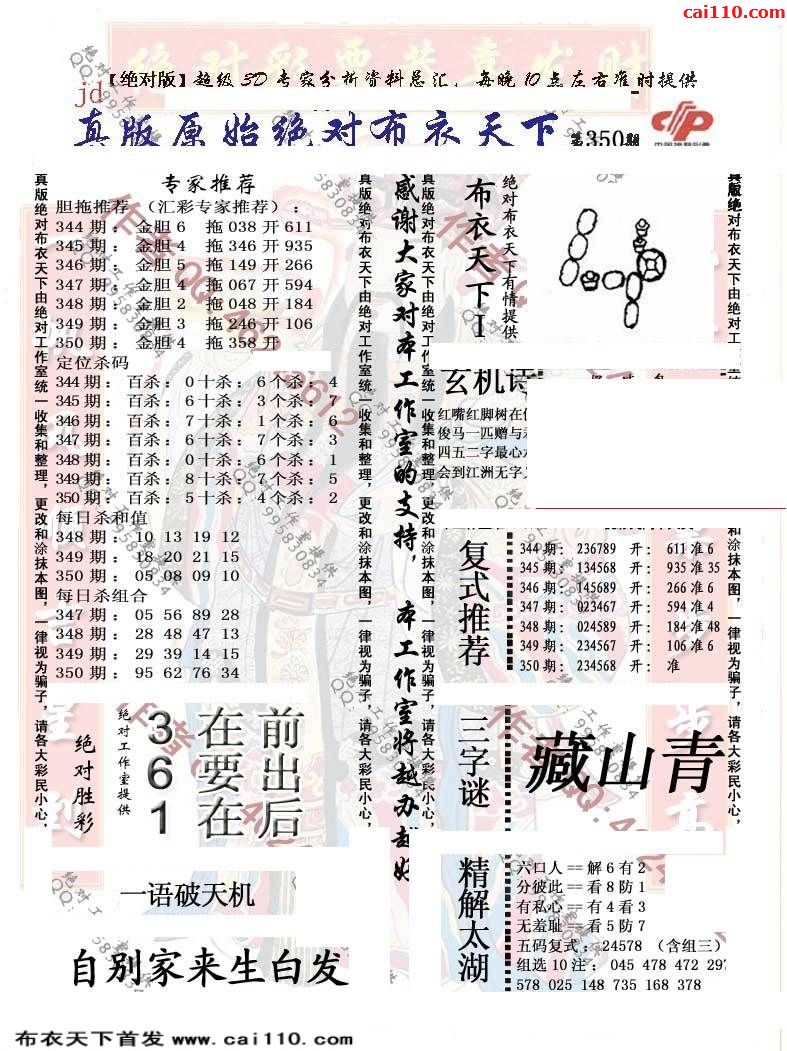 cai110.com
【绝对版】超级3D专家分析资料总汇，每晚10点左右准时提供
jd
真版原始绝对布衣天下 第350期
真版绝对布衣天下由绝对工作室统一收集和整理，更改和涂抹本图，一律视为骗子，请各大彩民小心，
专家推荐
胆拖推荐 （汇彩专家推荐）：
344期： 金胆6 拖038开611
345期： 金胆4 拖346开935
346期： 金胆5 拖149开266
347期： 金胆4 拖067开594
348期： 金胆2 拖048开184
349期： 金胆3 拖246开106
350期： 金胆4 拖358开
定位杀码
344期： 百杀：0十杀：6个杀：4
345期： 百杀：6十杀：3个杀：7
346期： 百杀：7十杀：1个杀：6
347期： 百杀：6十杀：7个杀：3
348期： 百杀：0十杀：6个杀：1
349期： 百杀：8十杀：7个杀：5
350期： 百杀：5十杀：4个杀：2
每日杀和值
348期： 10 13 19 12
349期： 18 20 21 15
350期： 05 08 09 10
每日杀组合
347期： 05 56 89 28
348期： 28 48 47 13
349期： 29 39 14 15
350期： 95 62 76 34
真版绝对布衣天下由绝对工作室统一收集和整理，更改和涂抹本图，一律视为骗子，请各大彩民小心，
感谢大家对本工作室的支持，本工作室将越办越好
真版绝对布衣天下由绝对工作室统一收集和整理，更改和涂抹本图，一律视为骗子，请各大彩民小心，
布衣天下I
绝对布衣天下有情提供
玄机诗
红嘴红脚树在
俊马一匹赠与
四五二字最心
会到江洲无字
真版绝对布衣天下由绝对工
和涂抹本图，一律视为骗子，请各大彩民小心，
复式推荐
344期： 236789 开： 611准6
345期： 134568 开： 935准35
346期： 145689 开： 266准6
347期： 023467 开： 594准4
348期： 024589 开： 184准48
349期： 234567 开： 106准6
350期： 234568 开： 准
绝对胜彩
绝对工作室提供
3 在 前
6 要 出
1 在 后
三字谜
藏山青
一语破天机
自别家来生白发
精解太湖
六口人 == 解6有2
分彼此 == 看8防1
有私心 == 有4看3
无羞耻 == 看5防7
五码复式：24578 （含组三）
组选10注： 045 478 472 297
578 025 148 735 168 378
布衣天下首发 www.cai110.com